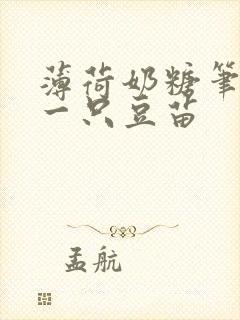 薄荷奶糖笔
一只豆苗
孟航